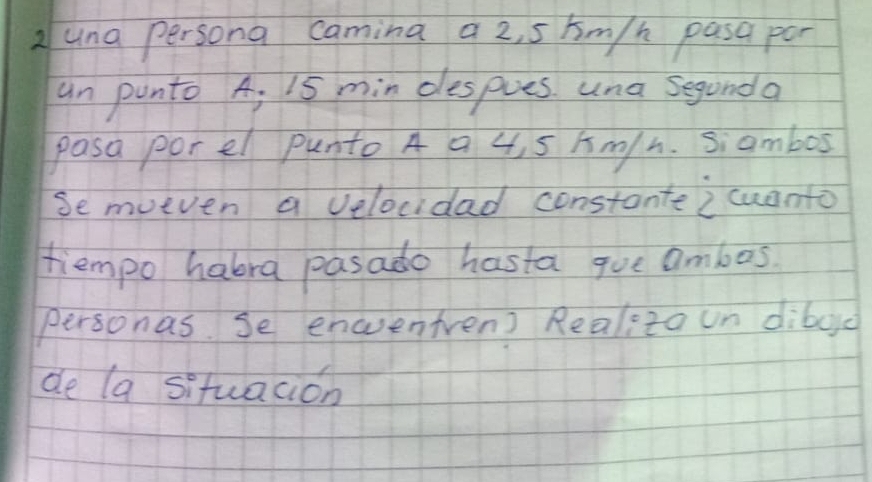 2 una persona camina a 2,5 Km/h pasa por
un punto A; 15 min despues. una Segunda
pasa por el punto A a 4,5 Km/h. Si ambos
se mueven a velocidad constante ¿cuanto
tiempo habra pasado hasta que ambas.
personas. se encuentren? Realiza un dibujo
de la situación